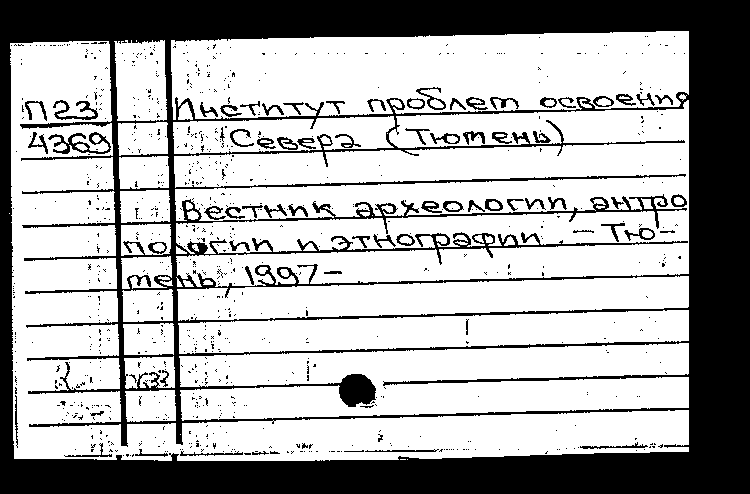 П23 Институт проблем освоения
4369 Севера (Тюмень)
Вестник археологии, антро
пологии и этнографии. - Тю-
мень, 1997-